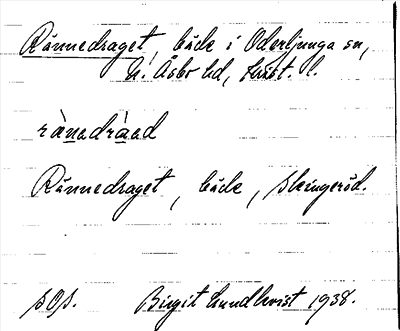 Rännedraget, bäck i Oderljunga sn,
N. Åsbo hd, Krist. l.
rànadràad
Rännedraget, bäck, Skingeröd.
SOS. Birgit Lundkvist 1938.